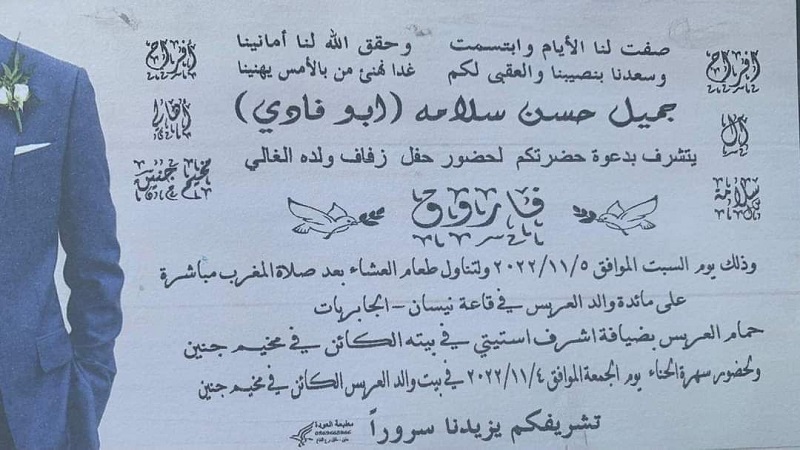 صفت لنا الأيام وابتسمت وحقق الله لنا أمانينا
وسعدنا بنصيبنا والعقبى لكم غدا نهنئ من بالأمس يهنينا
افراح
آل
سلامة
افراح
مخيم جنين
جميل حسن سلامه (ابو فادي)
يتشرف بدعوة حضرتكم لحضور حفل زفاف ولده الغالي
فاروق
وذلك يوم السبت الموافق ٢٠٢٢/١١/٥ ولتناول طعام العشاء بعد صلاة المغرب مباشرة
على مائدة والد العريس في قاعة نيسان - الجابريات
حمام العريس بضيافة اشرف استيتي في بيته الكائن في مخيم جنين
ولحضور سهرة الحناء يوم الجمعة الموافق ٢٠٢٢/١١/٤ في بيت والد العريس الكائن في مخيم جنين
تشريفكم يزيدنا سروراً
مطبعة العودة